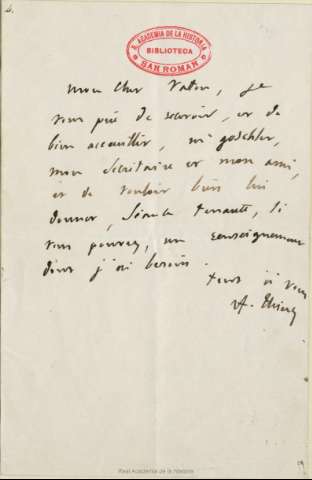 R. ACADEMIA DE LA HISTORIA
BIBLIOTECA
SAN ROMAN
Mon cher Valou, je
vous prie de recevoir, et de
bien accueillir, Mr
mon secrétaire et mon ami,
et de vouloir bien lui
donner, séance tenante, si
vous pouvez, un renseignement
dont j'ai besoin.
tout à vous
A. Thierry
Real Academia de la Historia